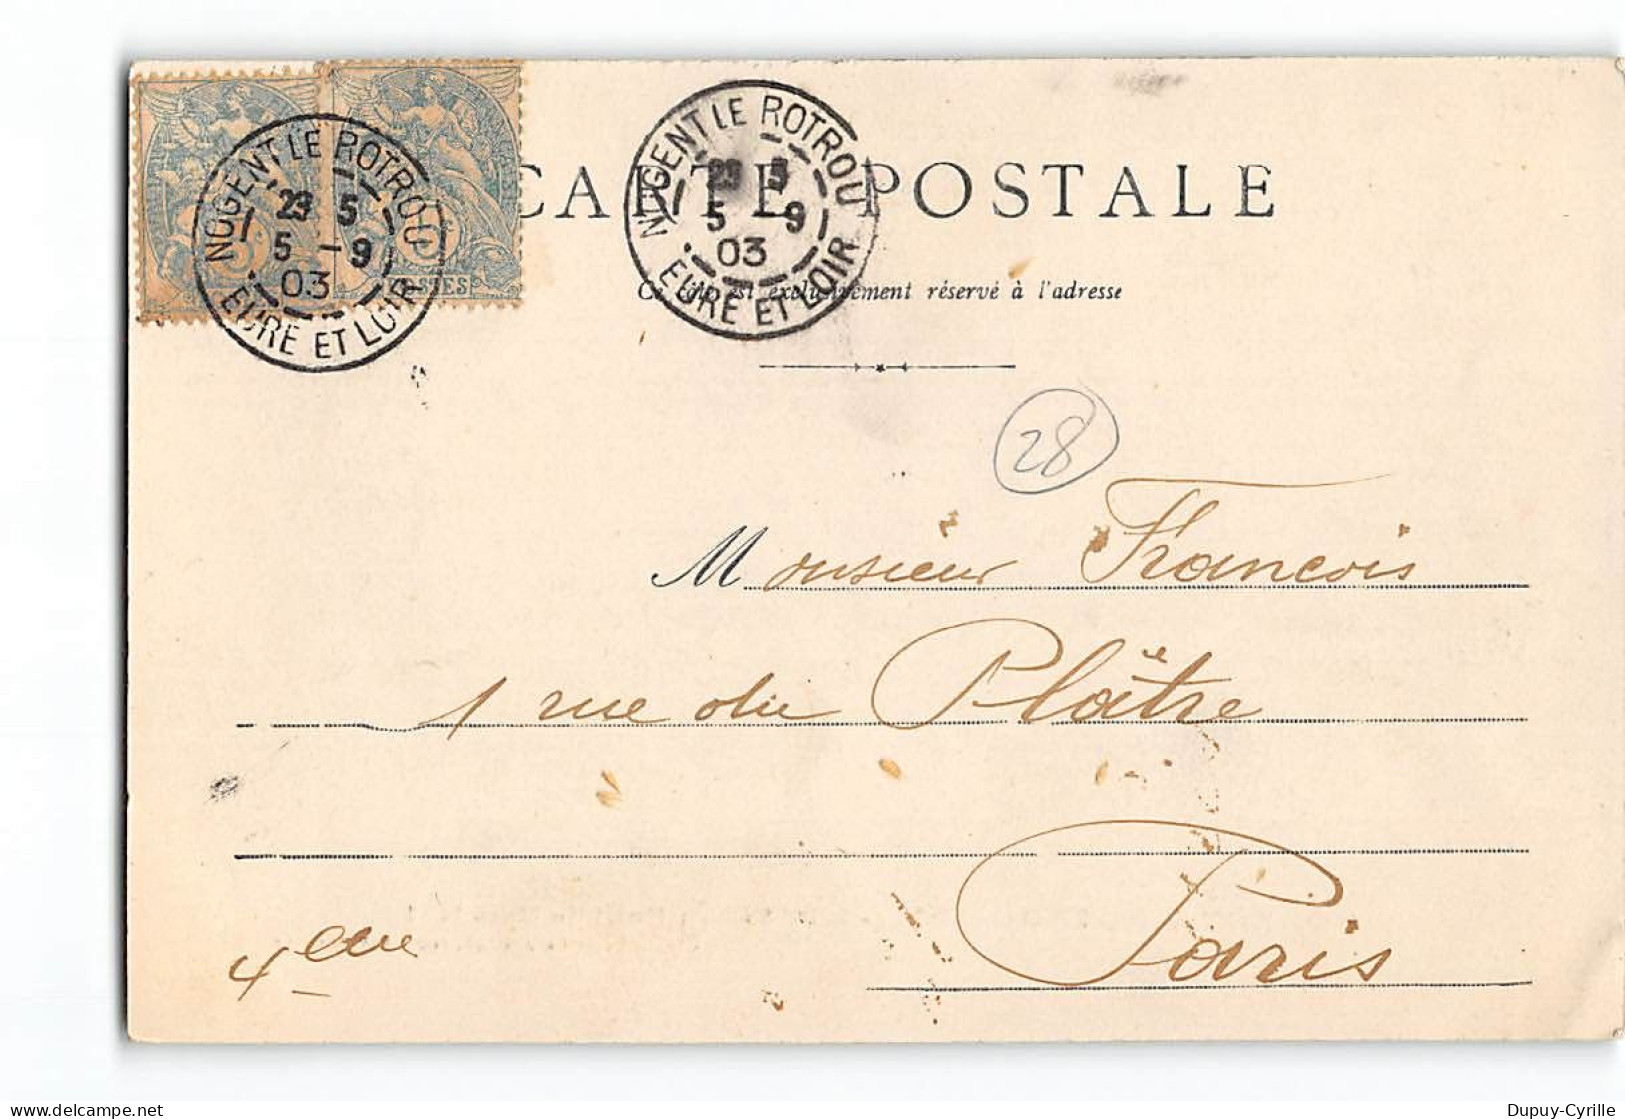 CARTE POSTALE
NOGENT LE ROTROU
23 5
5 -9
03
EURE ET LOIR
NOGENT LE ROTROU
5
5 -9
03
EURE ET LOIR
Ce côté est exclusivement réservé à l'adresse
28
Monsieur Francois
1 rue du Plâtre
Paris
4eme
delcampe.net
Dupuy-Cyrille